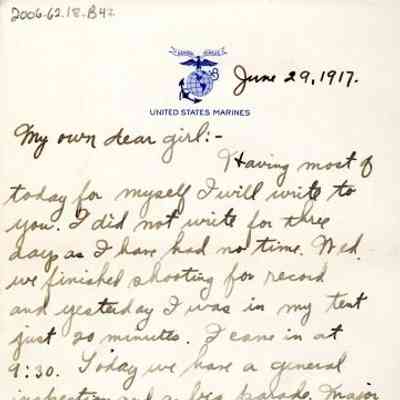 2006.62.18.B42
June 29, 1917.
UNITED STATES MARINES
My own dear girl:-
Having most of
today for myself I will write to
you. I did not write for three
days as I have had no time. Wed.
we finished shooting for record
and yesterday I was in my tent
just 20 minutes. I came in at
9:30. Today we have a general
inspection and a big parade. Major